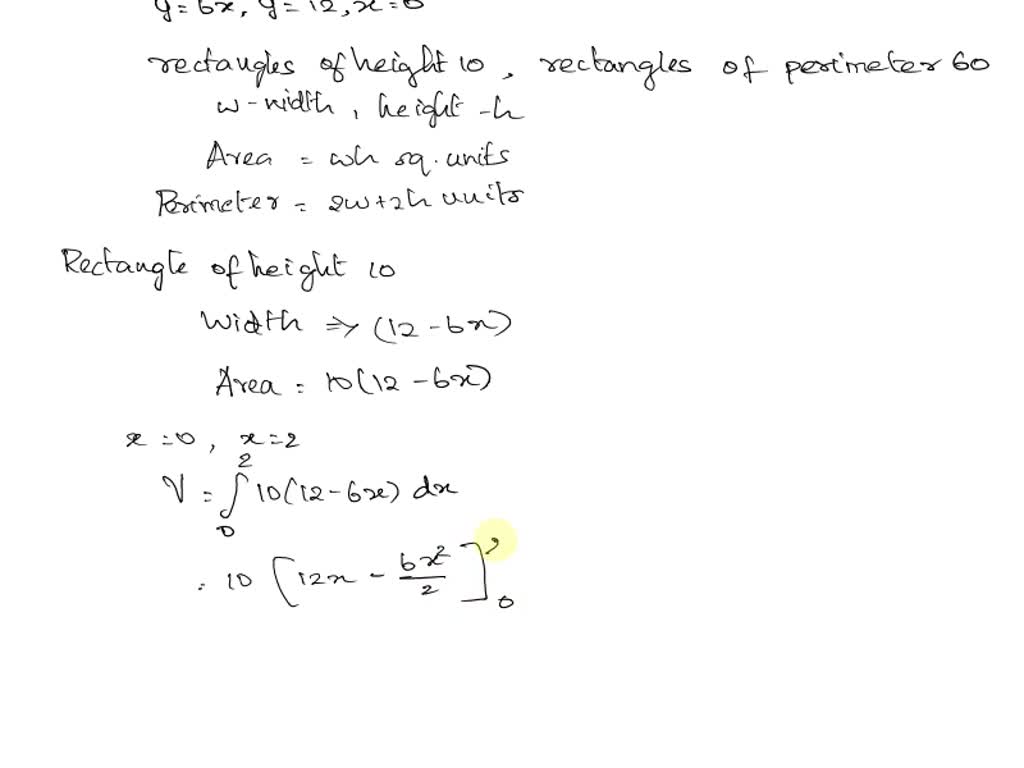 y = 6x, y = 12, x = 0
rectangles of height 10, rectangles of perimeter 60
w - width, height - h
Area = wh sq. units
Perimeter = 2w + 2h units
Rectangle of height 10
Width ⇒ (12 - 6x)
Area = 10(12 - 6x)
x = 0, x = 2
V = ∫₀² 10(12 - 6x) dx
= 10 [12x - 6x²/2]₀